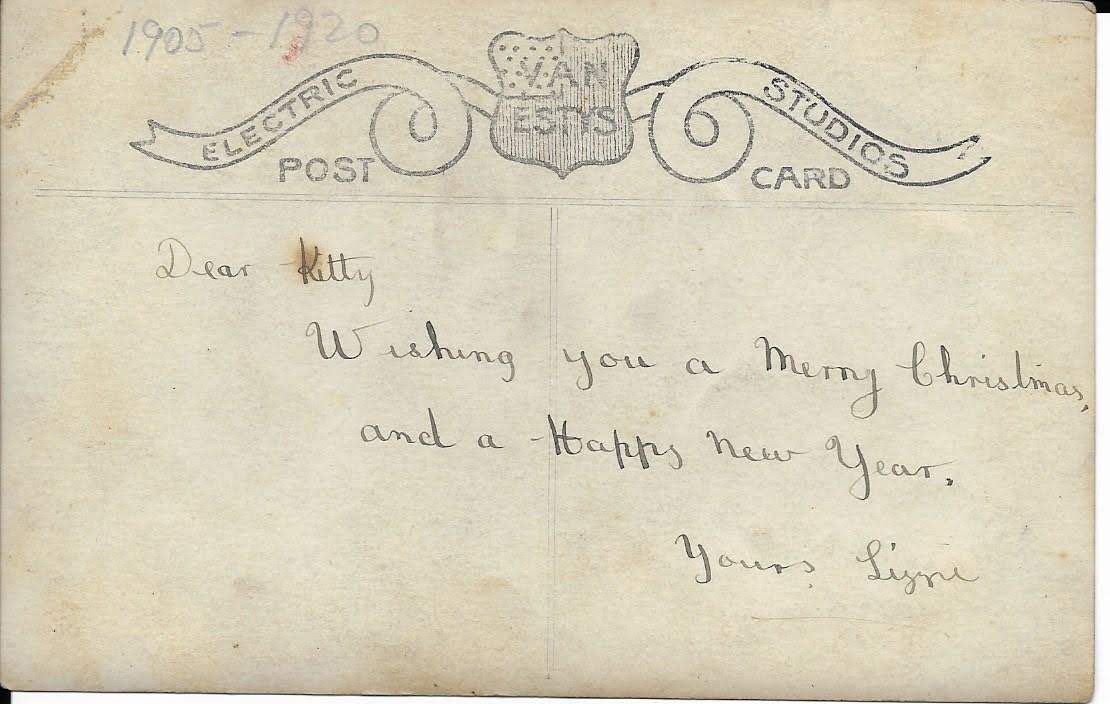 1905 - 1920
ELECTRIC VAN ESTYS STUDIOS
POST CARD
Dear Kitty
Wishing you a Merry Christmas,
and a Happy New Year.
Yours Lizzie